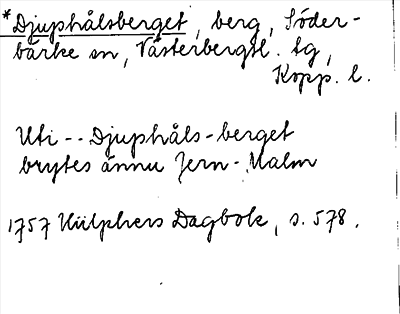 *Djuphålsberget, berg, Söder-
bärke sn, Västerbergsl. tg,
Kopp. l.
Uti -- Djuphåls-berget
brytes ännu Jern-Malm
1757 Hülphers Dagbok, s. 578.